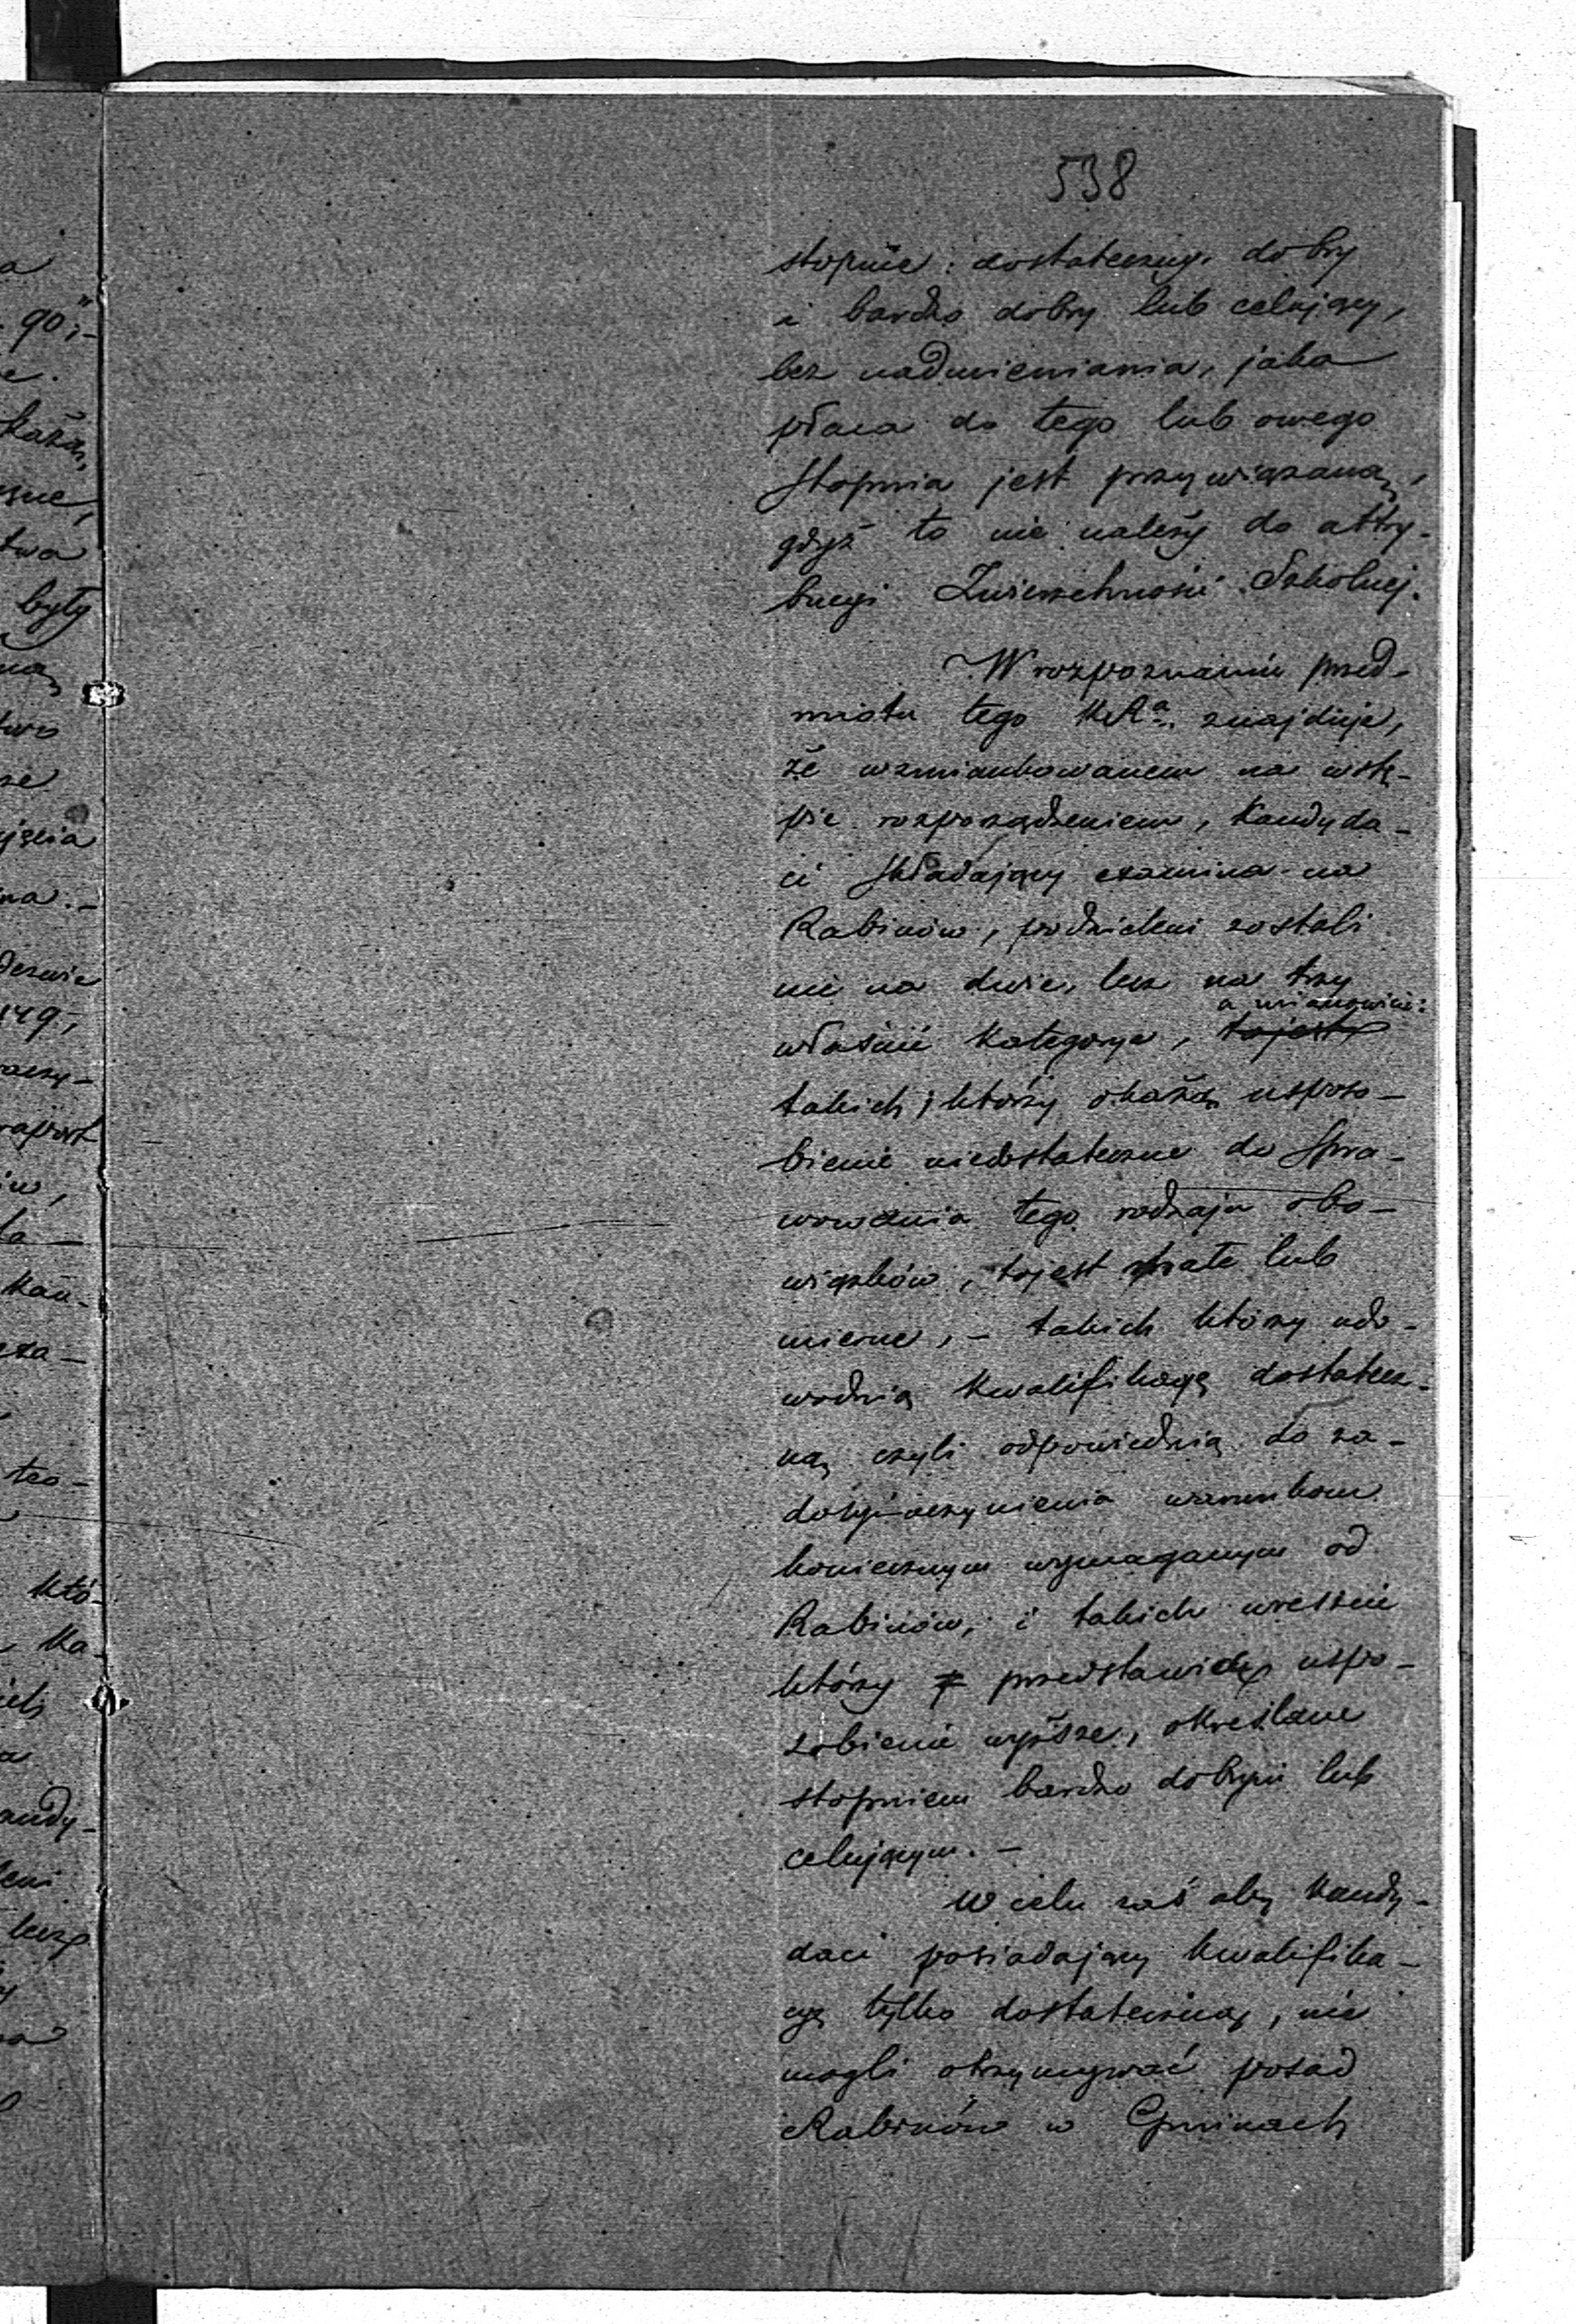 538
stopnie: dostateczny, dobry
i bardzo dobry lub celujący,
bez nadmieniania, jaka
płaca do tego lub owego
stopnia jest przywiązaną,
gdyż to nie należy do attry-
bucyi Zwierzchności Szkolnej.
W rozpoznaniu przed-
miotu tego KRa. znajduje,
że wzmiankowanem na wstę-
pie rozporządzeniem, Kandyda-
ci składający examina na
Rabinów, podzieleni zostali
nie na dwie, lecz na trzy
a mianowicie:
właściwie Kategorye, tojest
takich, którzy okażą usposo-
bienie niedostateczne do spra-
wowania tego rodzaju obo-
wiązków, tojest małe lub
mierne, – takich którzy udo-
wodnią kwalifikacyę dostatecz-
ną czyli odpowiednią do za-
dosyć-uczynienia warunkom
koniecznym wymaganym od
Rabinów, i takich wreszcie
którzy przedstawią uspo-
sobienie wyższe, określane
stopniem bardzo dobrym lub
celującym. –
W celu zaś aby Kandy-
daci posiadający kwalifika-
cyę tylko dostateczną, nie
mogli otrzymywać posad
Rabinów w Gminach
a
90,-
każą,
twa
były
ną
two
jścia
na.-
149,
raport
ów,
Kan-
teo-
któ-
Ka-
andy-
leni
lecz